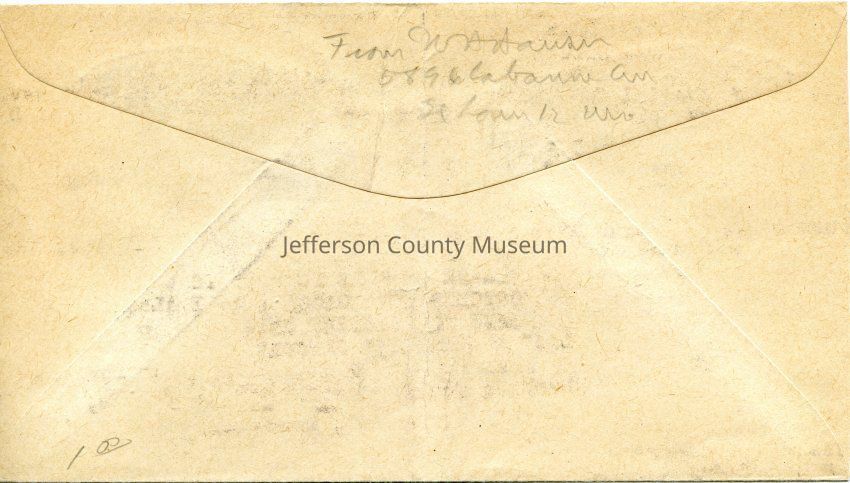 From W A Hauser
5896 Cabanne Av
St Louis 12 Mo.
Jefferson County Museum
1 00